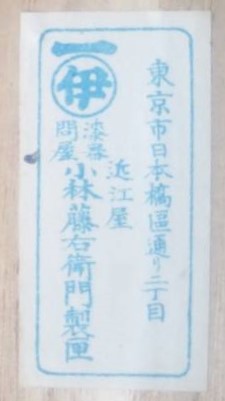 東京市日本橋區通り二丁目
近江屋
漆器
問屋
小林藤右衛門製匣
一
伊